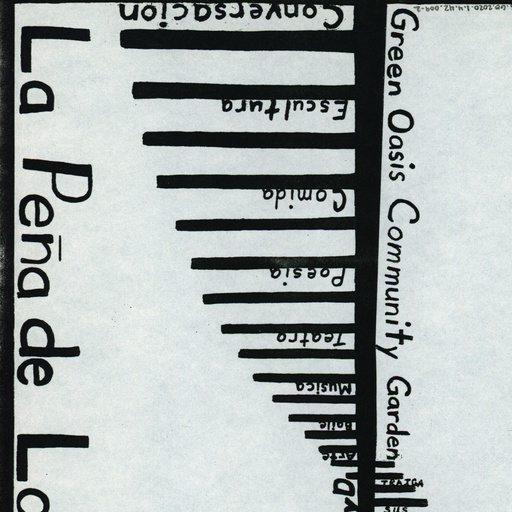 La Peña de Lo
Conversacion
Escultura
Comida
Poesia
Teatro
Musica
Baile
Arte
Green Oasis Community Garden
TRAIGA
SUS